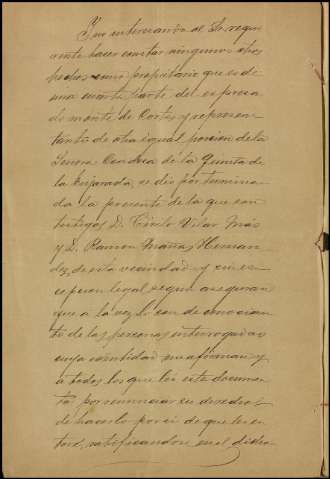 Y no interesando al Sr. requi
rente hacer constar ningunos otros
hechos como propietario que es de
una cuarta parte del expresa
do monte de Cortes y represen
tante de otra igual porcion de la
Señora Condesa de la Quinta de
la Enjarada, se dió por termina
da la presente de la que son
testigos D. Cirilo Vilar Más
y D. Ramon Mañas Hernan
dez, de esta vecindad y sin es
cepcion legal segun aseguran
que á la vez lo son de conocimien
to de las personas interrogadas
cuya identidad me afirman y
á todos los que leí este documen
to, por renunciar su derecho
de hacerlo por sí de que les en
teré, ratificandose en él